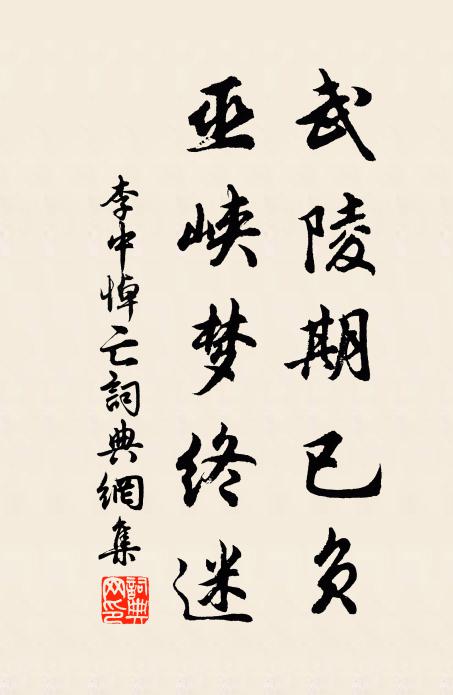 武陵期已负
巫峡梦终迷
李中悼亡詞典網集
詞典網印